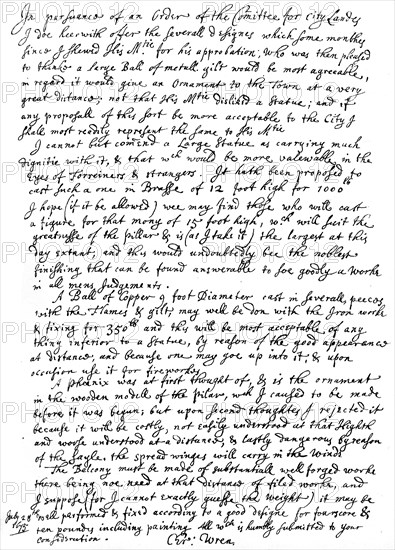 In pursuance of an Order of the Comittee for City Landes
I doe heerwith offer the severall designes which some monthes
since I shewed His Mtie. for his approbation, who was then pleased
to thinke a large Ball of metall gilt would be most agreeable,
in regard it would give an Ornament to the Town at a very
great distance; not that His Mtie disliked a Statue; and if
any proposall of this sort be more acceptable to the City I
shall most readily represent the same to His Mtie
I cannot but comend a Large Statue as carrying much
dignitie with it, & that wch would be more valewable in the
Eyes of Forreiners & strangers. It hath been proposed to
cast such a one in Brasse of 12 foot high for 1000lb
I hope (if it be allowed) wee may find those who will cast
a figure for that mony of 15 foot high, wch will suit the
greatnesse of the pillar & is (as I take it) the largest at this
day extant; and this would undoubtedly bee the noblest
finishing that can be found answerable to soe goodly a worke
in all mens Judgements.
A Ball of Copper 9 foot Diameter cast in severall peeces
with the Flames & gilt, may well be don with the Iron worke
& fixing for 350lb and this will be most acceptable of any
thing inferior to a Statue, by reason of the good appearance
at distance, and because one may goe up into it; & upon
occasion use it for fireworkes.
A phoenix was at first thought of, & is the ornament
in the wooden modell of the pilar, wch I caused to be made
before it was begun; but upon second thoughtes I rejected it
because it will be costly, not easily understood at that Highth
and worse understood at a distance, & lastly dangerous by reason
of the sayle, the spread winges will carry in the winde
The Balcony must be made of substantiall well forged worke
there being noe need at that distance of filed worke, and
I suppose (for I cannot exactly guesse the weight) it may be
well performed & fixed according to a good designe for fourscore &
ten poundes including painting. All wch is humbly submitted to your
consideration.
July 28th
75
Chr: Wren.